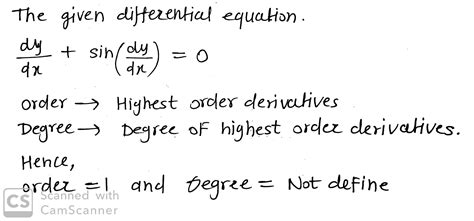 The given differential equation.
dy/dx + sin(dy/dx) = 0
order → Highest order derivatives
Degree → Degree of highest order derivatives.
Hence,
order = 1 and Degree = Not define
CS Scanned with
CamScanner